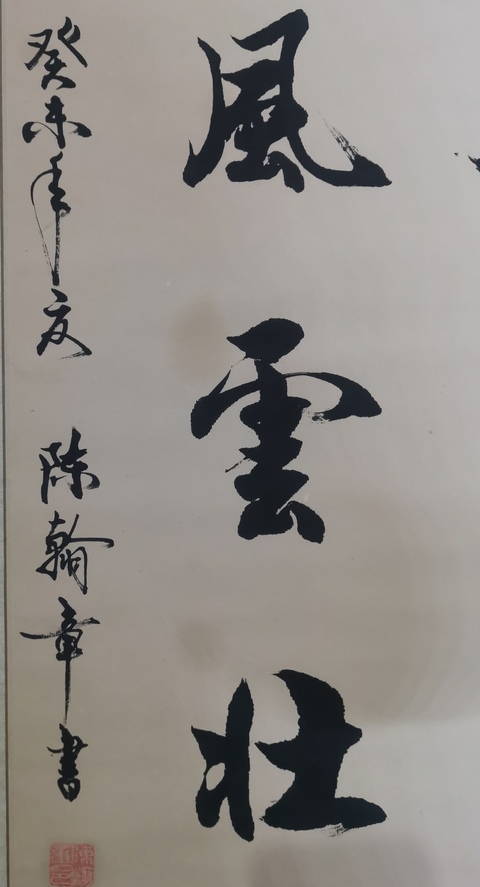 風雲壯
癸未年夏 陳翰章書